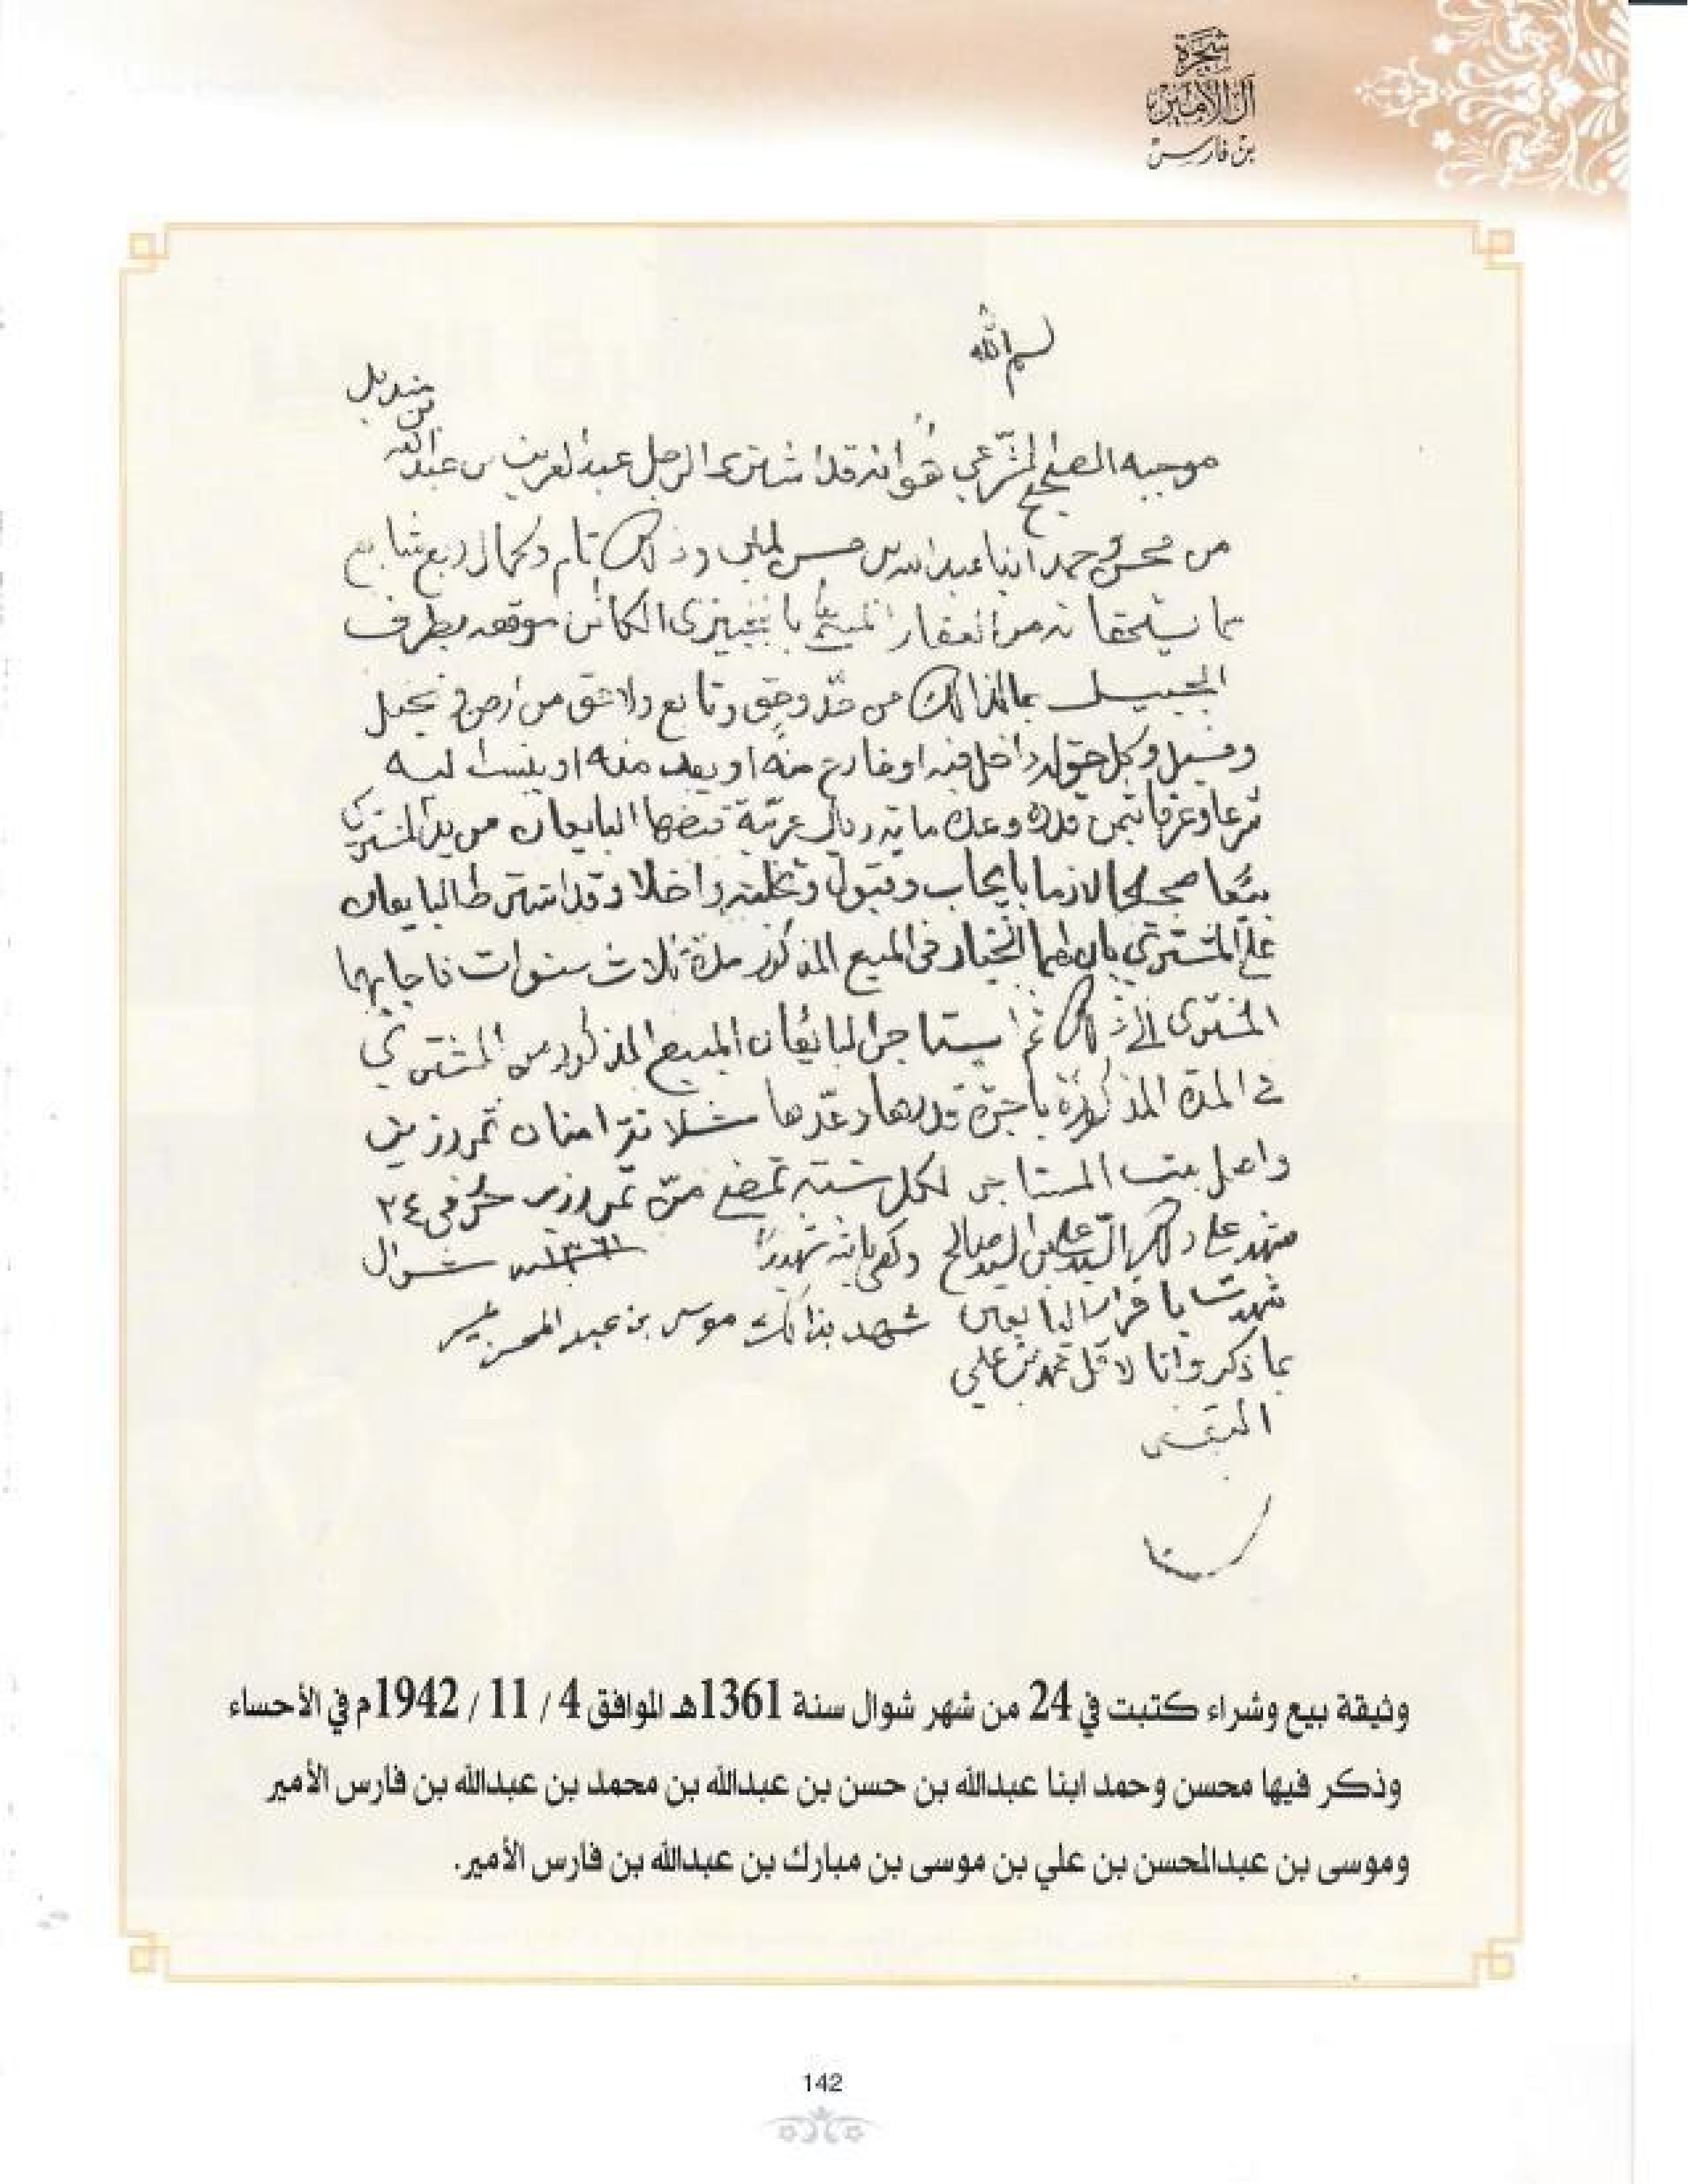 شجرة
آل الأمير
بن فارس
بسم الله
بن منديل
موجبه الصحيح الشرعي هو انه قد اشترى الرجل عبد العزيز بن عبد الله
من محسن وحمد ابنا عبد الله بن حسن وذالك تام وكمال ربع شايع
مما يستحقانه من العقار المسمى الكائن موقعه بطرف
الجبيل بما لذالك من حد وحق وتابع ولاحق من ارض ونخيل
وفسيل وكل حق له داخل فيه او خارج منه او يعد منه او ينسب ليه
شرعا وعرفا بثمن قدره وعده مايه ريال عربية قبضها البايعان من يد المشتري
بيعا صحيحا لازما بايجاب وقبول وتخلية واخلا وقد اشترطا البايعان
على المشتري بان لهما الخيار في المبيع المذكور مدة ثلاث سنوات فاجابهما
المشترى الى ذالك ثم استاجرا البائعان المبيع المذكور من المشتري
في المدة المذكورة باجرة قدرها وعدها ثلاثة امنان تمر رزيز
واصل بيت المستاجر لكل سنة تمضي من تمر رزيز حرر في ٢٤
شهد على ذلك السيد علي بن السيد صالح وكفى بالله شهيدا ١٣٦١ شوال
شهدت باقرار البايعين شهد بذالك موسى بن عبد المحسن
بما ذكر وانا لاقل محمد بن علي
وثيقة بيع وشراء كتبت في 24 من شهر شوال سنة 1361هـ الموافق 4 / 11 / 1942م في الأحساء
وذكر فيها محسن وحمد ابنا عبدالله بن حسن بن عبدالله بن محمد بن عبدالله بن فارس الأمير
وموسى بن عبدالمحسن بن علي بن موسى بن مبارك بن عبدالله بن فارس الأمير.
142